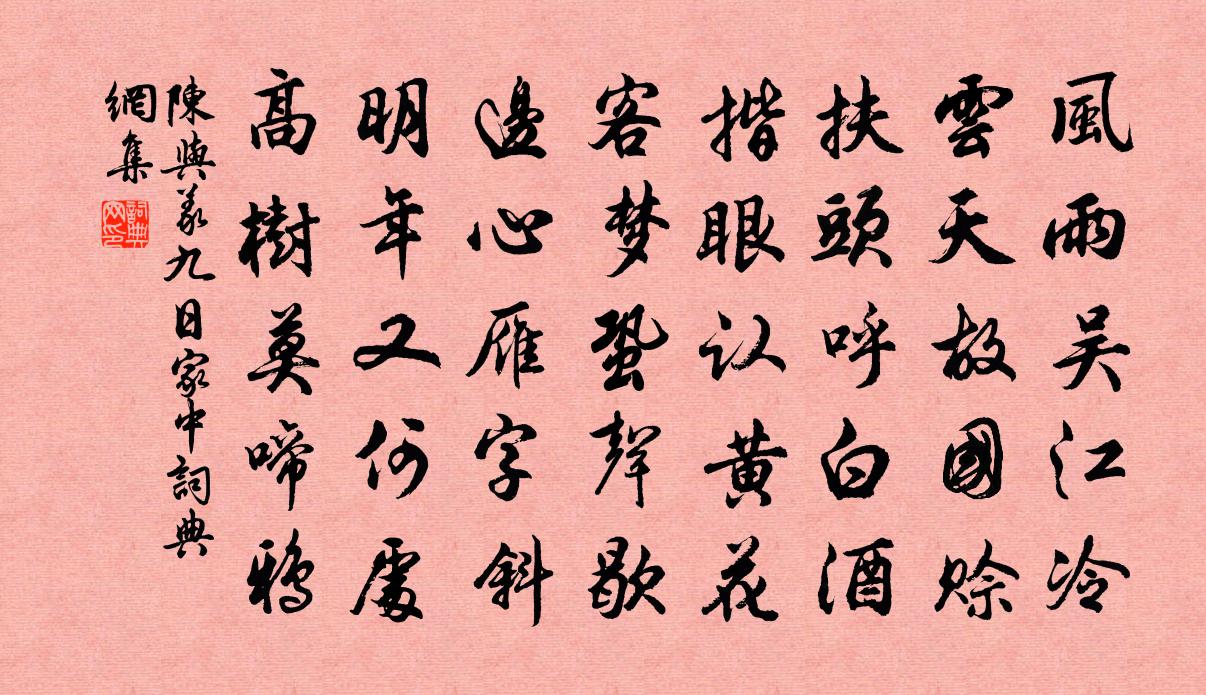 風雨吴江冷
雲天故國賒
扶頭呼白酒
揩眼认黄花
客梦蛩聲歇
邊心雁字斜
明年又何處
高樹莫啼鴉
陳與義九日家中詞典
網集
詞典